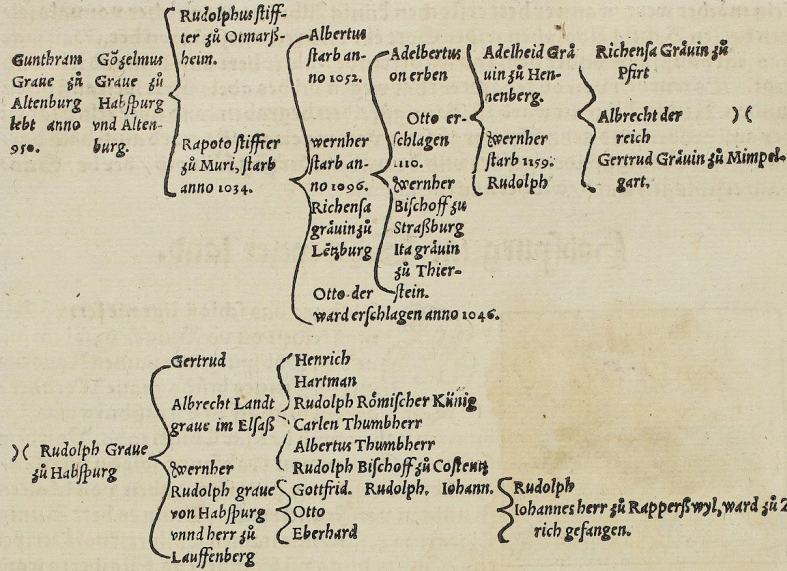 Gunthram
Graue zů
Altenburg
lebt anno
950.
Gözelmus
Graue zů
Habſpurg
vnd Alten-
burg.
Rudolphus ſtiff-
ter zů Otmarß-
heim.
Rapoto ſtiffter
zů Muri, ſtarb
anno 1034.
Albertus
ſtarb an-
no 1052.
wernher
ſtarb an-
no 1096.
Richenſa
gräuin zů
Lētzburg
Otto der
ward erſchlagen anno 1046.
Adelbertus
on erben
Otto er-
ſchlagen
1110.
Wernher
Biſchoff zu
Straßburg
Ita gräuin
zů Thier-
ſtein.
Adelheid Grå
uin zů Hen-
nenberg.
Wernher
ſtarb 1159.
Rudolph
Richenſa Gräuin zů
Pfirt
Albrecht der )(
reich
Gertrud Gräuin zů Mimpel-
gart.
)( Rudolph Graue
zů Habſpurg
Gertrud
Albrecht Landt
graue im Elſaß
Wernher
Rudolph graue
von Habſpurg
vnnd herr zů
Lauffenberg
Henrich
Hartman
Rudolph Römiſcher Künig
Carlen Thumbherr
Albertus Thumbherr
Rudolph Biſchoff zů Coſtentz
Gottfrid. Rudolph. Iohann.
Otto
Eberhard
Rudolph
Iohannes herr zů Rapperßwyl, ward zů Z
rich gefangen.